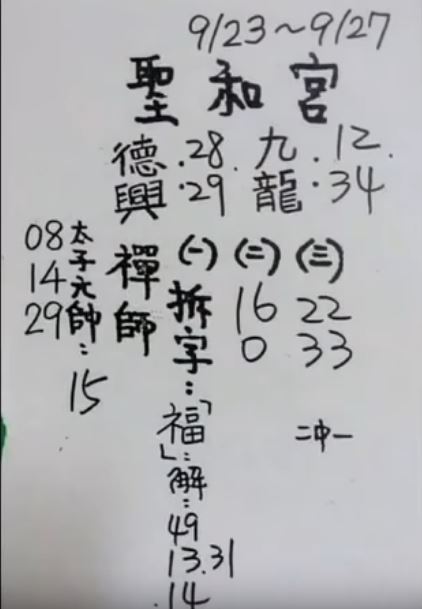 9/23~9/27
聖和宮
德.28. 九.12.
興.29 龍.34
禪師
(一) (二) (三)
拆字:
16 22
0 33
「福」解:
49
13.31
.14
太子元帥:
08
14
29
15
二中一